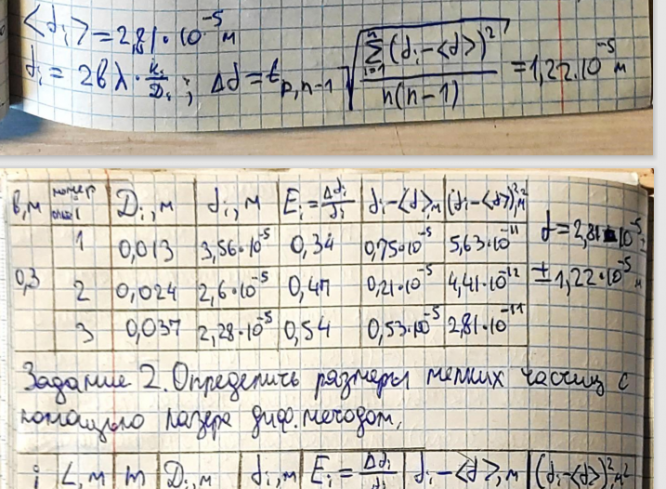 <d_i> = 2,81·10⁻⁵ м
d_i = 2вλ·k_i/D_i ; Δd = t_{p,n-1} √(∑_{i=1}^{n}(d_i-<d>)²/n(n-1)) = 1,22·10⁻⁵ м
в,м | номер D_i,м | d_i,м | E_i = Δd_i/d_i | d_i-<d>,м | (d_i-<d>)²,м²
1 | 0,013 | 3,56·10⁻⁵ | 0,34 | 0,75·10⁻⁵ | 5,63·10⁻¹¹
d = 2,81·10⁻⁵
0,3 | 2 | 0,024 | 2,6·10⁻⁵ | 0,47 | 0,21·10⁻⁵ | 4,41·10⁻¹²
± 1,22·10⁻⁵ м
3 | 0,037 | 2,28·10⁻⁵ | 0,54 | 0,53·10⁻⁵ | 2,81·10⁻¹¹
Задание 2. Определить размеры мелких частиц с
помощью лазера диф. методом,
i | L,м | m | D_i,м | d_i,м | E_i = Δd_i/d_i | d_i-<d>,м | (d_i-<d>)²,м²